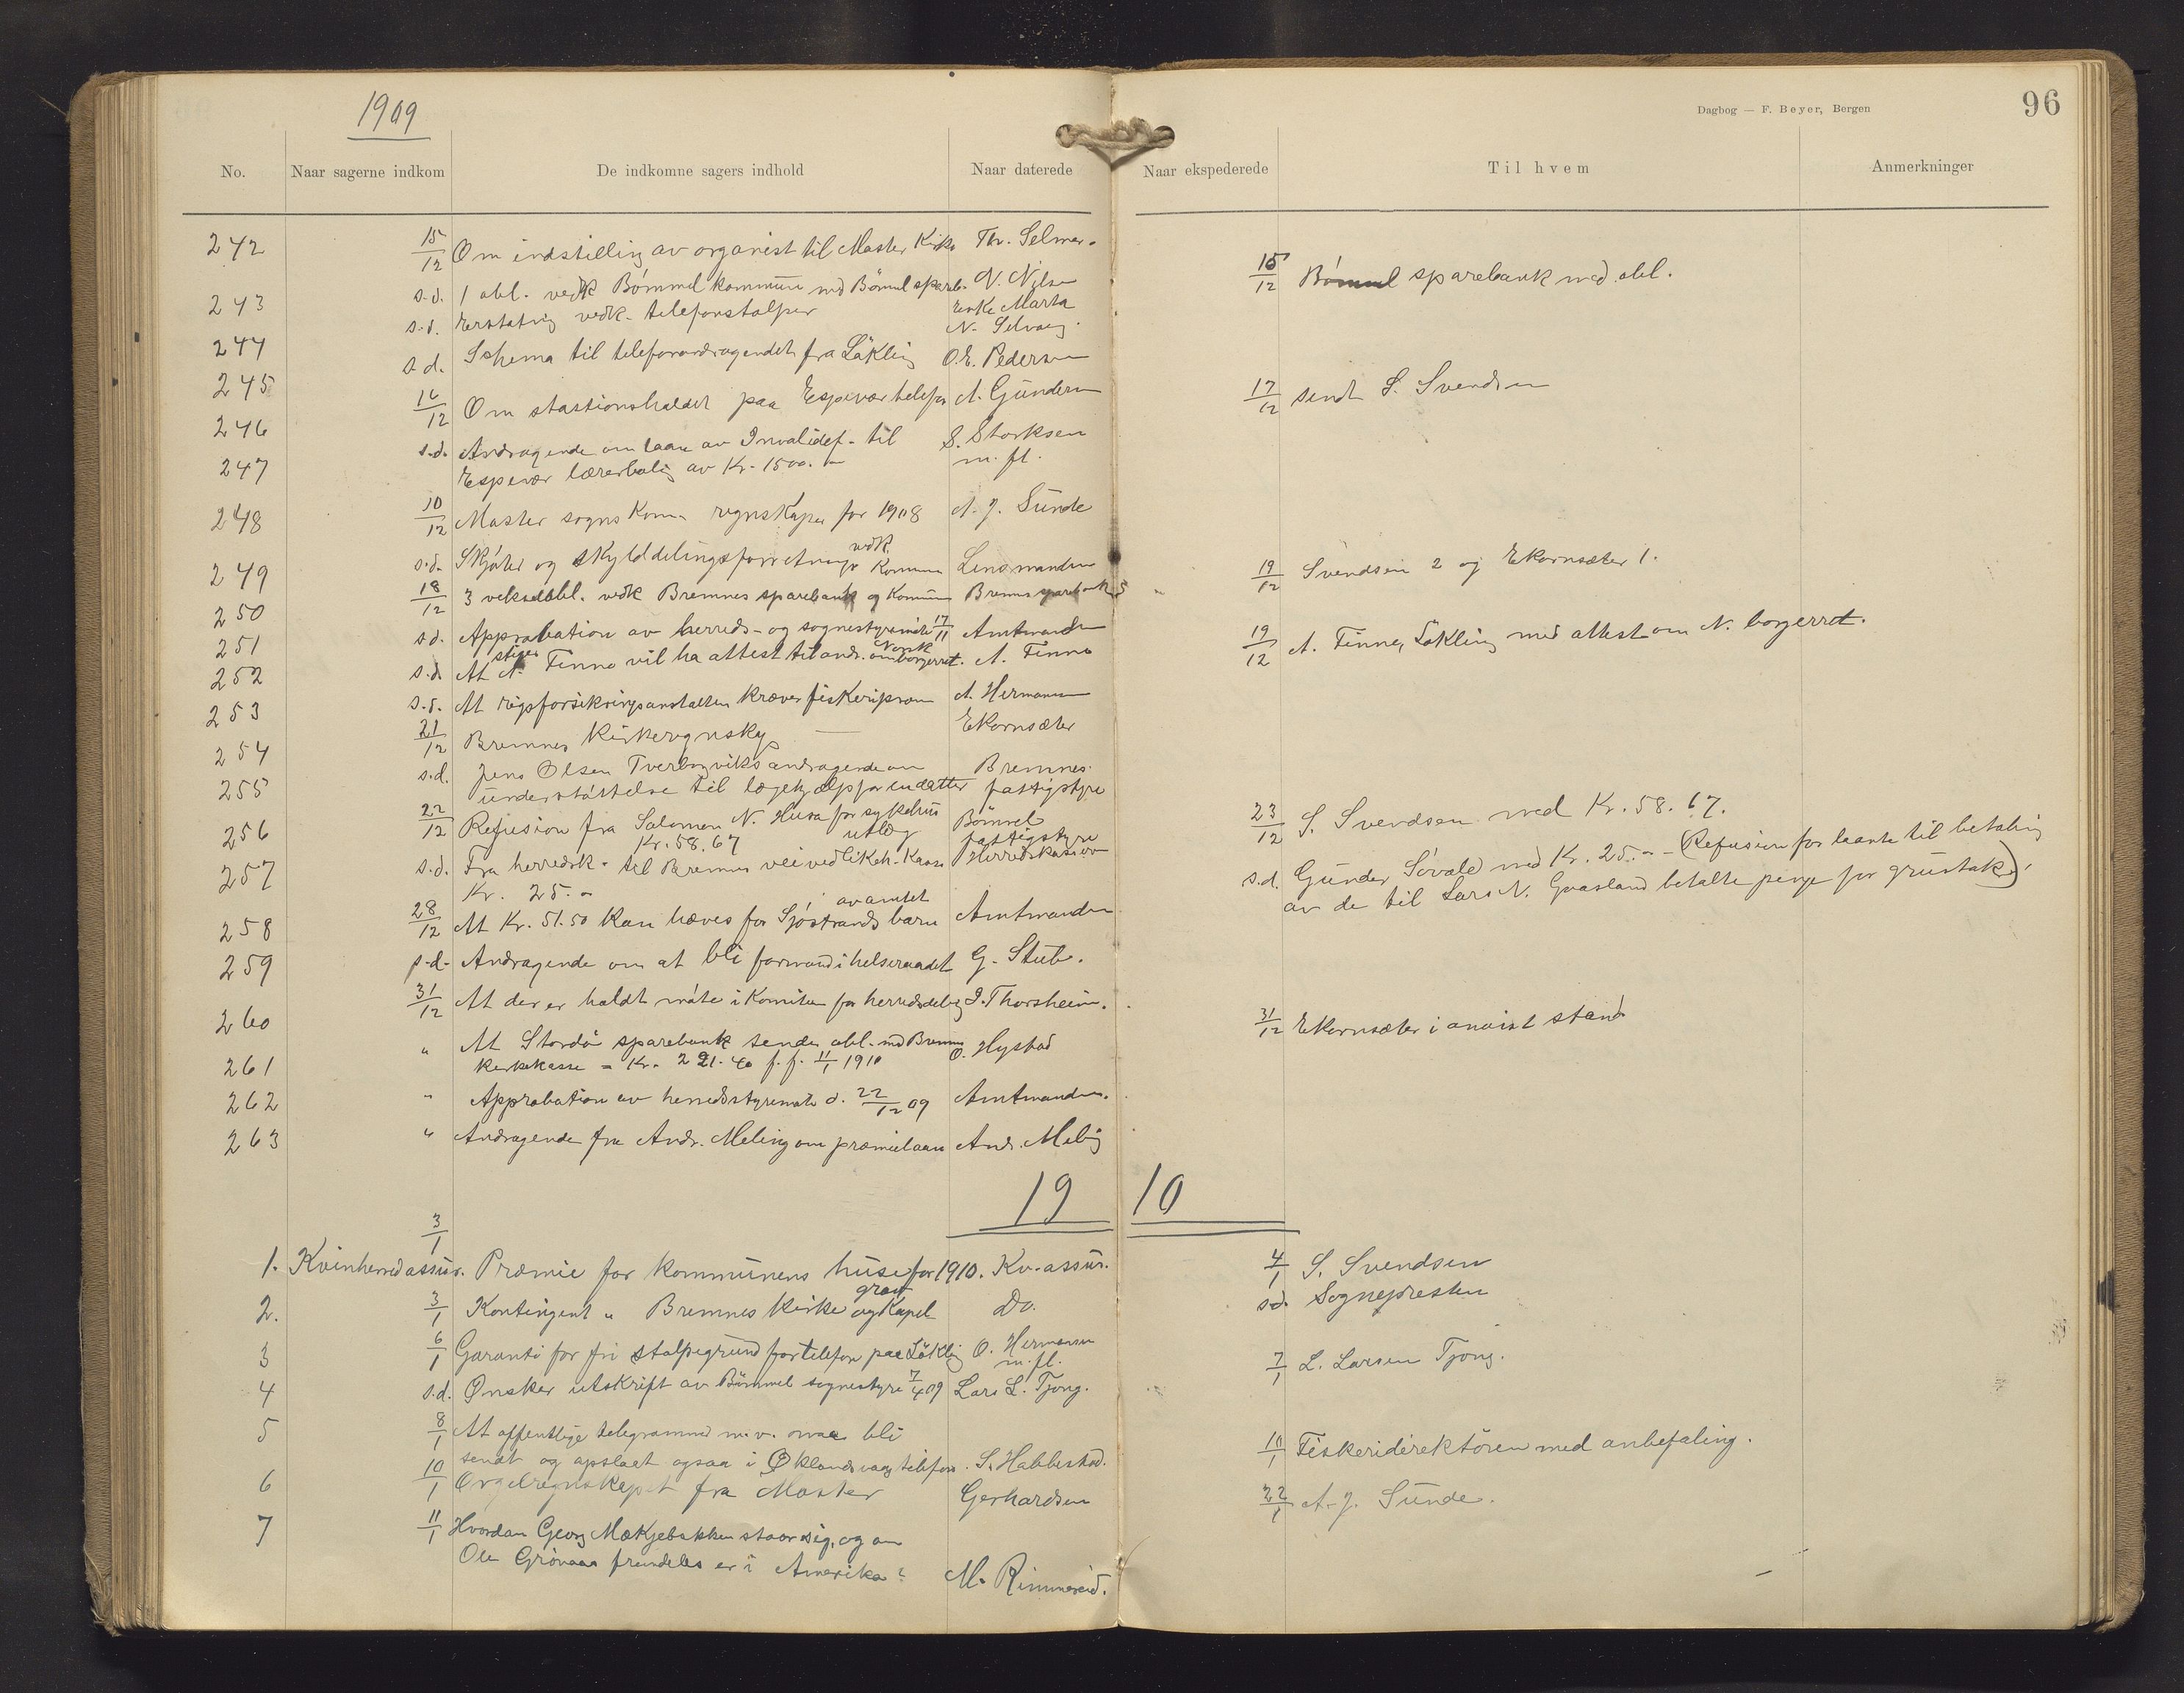 1909
Dagbog — F. Beyer, Bergen
96
No. Naar sagerne indkom De indkomne sagers indhold Naar daterede Naar ekspederede Til hvem Anmerkninger
242 15/12 Om indstilling av organist til Møster Kirke Th. Selmer.
243 s.d. 1 obl. vedk Bömmel kommune med Bömmel spareb. N. Nilsen 15/12 Bömmel sparebank med obl.
244 s.d. Erstatning vedk. telefonstolper Enke Marta N. Selvaag.
245 s.d. Schema til telefonandragendet fra Läkling O. E. Pedersen
246 16/12 Om stastionsholdet paa Espevær telefon A. Gundersen 17/12 sendt S. Svendsen
247 s.d. Andragende om laan av Invalidef. til S. Storksen
Espevær lærerbolig av Kr. 1500.- m. fl.
248 10/12 Møster sogns Kom. regnskaper for 1908 A. J. Sunde
249 s.d. Skjöter og skylddelingsforretninger vedk. Kommunen Lensmanden
250 18/12 3 vekselobl. vedk Bremnes sparebank og Kommune Bremnes sparebank 19/12 Svendsen 2 og Ekornsæter 1.
251 s.d. Approbation av herreds- og sognestyremöte 17/11 Amtmanden
252 s.d. At stiger A. Finne vil ha attest til andr. om Norsk borgerret. A. Finne 19/12 A. Finne, Läkling med attest om N. borgerret.
253 s.d. At rigsforsikringsanstalten kræver fiskeriprem A. Hermansen
254 21/12 Bremnes Kirkeregnskap Ekornsæter
255 s.d. Jens Olsen Tverborgviks andragende om Bremnes
understöttelse til lægehjelp for en datter fattigstyre
256 22/12 Refusion fra Salomon N. Husa for sykehus Bömmel 23/12 S. Svendsen med Kr. 58.67.
utlæg Kr. 58.67 fattigstyre
257 s.d. Fra herredsk. til Bremnes veivedlikeh. Kasse Herredskasserer s.d. Gunder Sövold med Kr. 25.- (Refusion for laante til betaling
Kr. 25.- av de til Lars N. Gaasland betalte penge for grustak).
258 28/12 At Kr. 51.50 kan hæves for Sjöstrands barn av amtet Amtmanden
259 s.d. Andragende om at bli formand i helseraadet G. Stub.
260 31/12 At der er holdt möte i Komiteen for herredsdeling I. Thorsheim.
261 " At Stordö sparebank sender obl. med Bremnes O. Hystad 31/12 Ekornsæter i anvist stand
kirkekasse = Kr. 221.40 f. f. 11/1 1910
262 " Approbation av herredsstyremöte d. 22/12 09 Amtmanden.
263 " Andragende fra Andr. Meling om præmielaan Andr. Meling
19 10
1. 3/1 Kvinherred assur. Præmie for kommunens huse for 1910. Kv. assur. 4/1 S. Svendsen
2. 3/1 Kontingent " Bremnes kirke og grav Kapel Do. s.d. Sognepresten
3 6/1 Garanti for fri stolpegrund for telefon paa Läkling O. Hermansen m.fl.
4 s.d. Ønsker utskrift av Bömmel sognestyre 7/4 09 Lars L. Tjong. 7/1 L. Larsen Tjong.
5 8/1 At offentlige telegrammer m.v. maa bli
sendt og opslaat ogsaa i Øklandsvaag telefon. S. Habbestad. 10/1 Fiskeridirektören med anbefaling.
6 10/1 Orgelregnskapet fra Møster Gerhardsen 22/1 A. J. Sunde.
7 11/1 Hvordan Georg Mækjebakken staar sig, og om
Ole Grönaas fremdeles er i Amerika? M. Rimmereid.